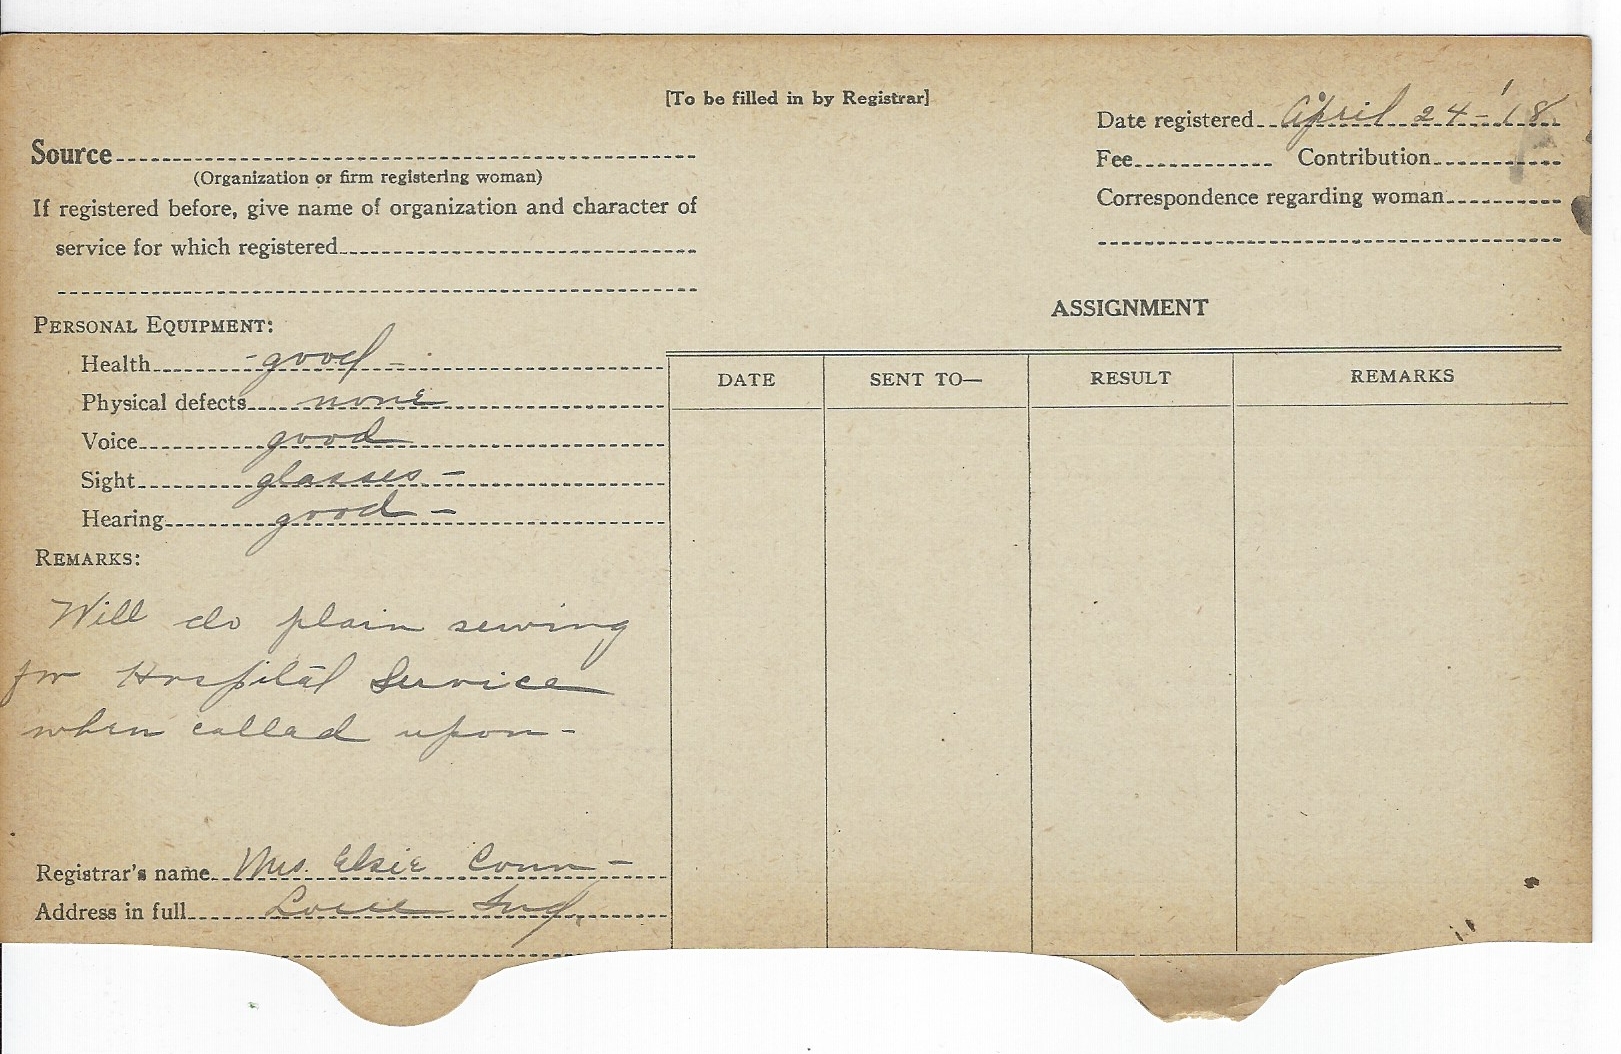 [To be filled in by Registrar]
Date registered April 24-'18
Source
(Organization or firm registering woman)
Fee Contribution
If registered before, give name of organization and character of
service for which registered
Correspondence regarding woman
PERSONAL EQUIPMENT:
Health -good-
Physical defects none
Voice good
Sight glasses-
Hearing good-
REMARKS:
Will do plain sewing
for Hospital Service
when called upon-
Registrar's name Mrs. Elsie Conn-
Address in full Ind.
ASSIGNMENT
DATE SENT TO— RESULT REMARKS